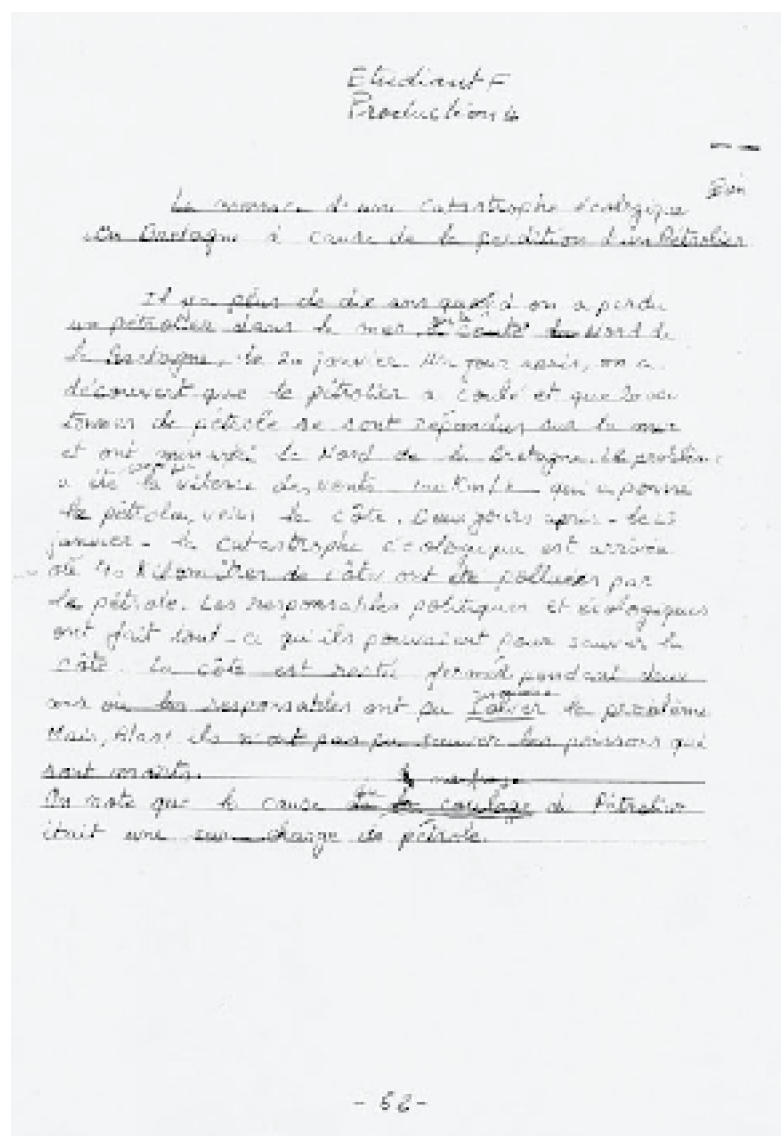 Etudiant F
Production 4
Bien
La menace d'une catastrophe écologique
en Bretagne à cause de la perdition d'un Pétrolier
Il y a plus de dix ans on a perdu
un pétrolier dans la mer, Nord de
la Bretagne, le 20 janvier. Un jour après, on a
découvert que le pétrolier a coulé et que
tonnes de pétrole se sont répondus sur la mer
et ont menacé le Nord de la Bretagne. Le problème
a été la vitesse des vents Km/h qui a poussé
le pétrole, vers la côte. Deux jours après - le
janvier - la catastrophe écologique est arrivée
où 40 kilomètres de côte ont été polluées par
le pétrole. Les responsables politiques et écologiques
ont fait tout - ce qu'ils pouvaient pour sauver la
côte. La côte est resté fermé pendant deux
ans où les responsables ont pu le problème
Mais, Hélas! ils n'ont pas pu sauver les poissons qui
sont morts.
le naufrage
On note que la cause de la coulage du Pétrolier
était une sur charge de pétrole.
- 62 -